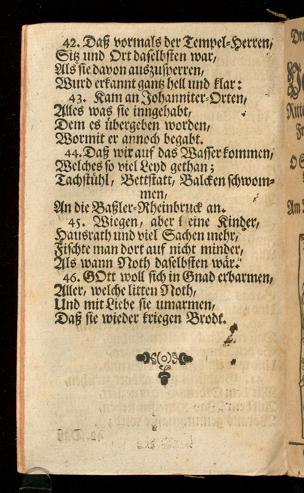 42. Daß vormals der Tempel-Herren,
Sitz und Ort daselbsten war,
Als sie davon auszusperren,
Wurd erkannt gantz hell und klar:
43. Kam an Johanniter-Orten,
Alles was sie inngehabt,
Dem es übergeben worden,
Wormit er annoch begabt.
44. Daß wir auf das Wasser kommen,
Welches so viel Leyd gethan;
Tachstühl, Bettstatt, Balcken schwom-
men,
An die Baßler-Rheinbruck an.
45. Wiegen, aber keine Kinder,
Hausrath und viel Sachen mehr,
Fischte man dort auf nicht minder,
Als wann Noth daselbsten wär.
46. GOtt woll sich in Gnad erbarmen,
Aller, welche litten Noth,
Und mit Liebe sie umarmen,
Daß sie wieder kriegen Brodt.